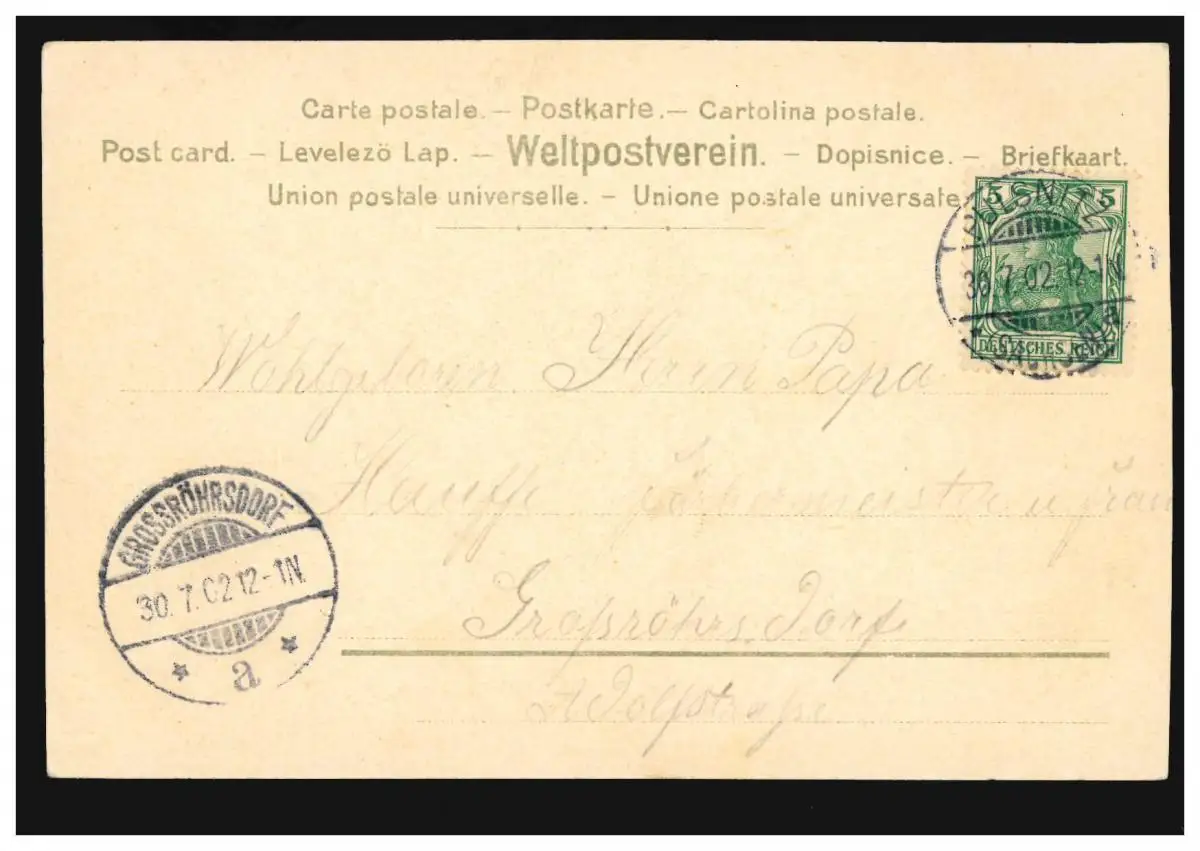 Carte postale. – Postkarte. – Cartolina postale.
Post card. – Levelezö Lap. – Weltpostverein. – Dopisnice. – Briefkaart.
Union postale universelle. – Unione postale universate
5 5
PULSNITZ
30.7.02.12-1N
DEUTSCHES REICH
Wohlgeboren Herrn Papa
Hauffe Färbermeister u frau
Großröhrsdorf
Adolfstraße
GROSSRÖHRSDORF
30.7.02 12-1N.
* a *